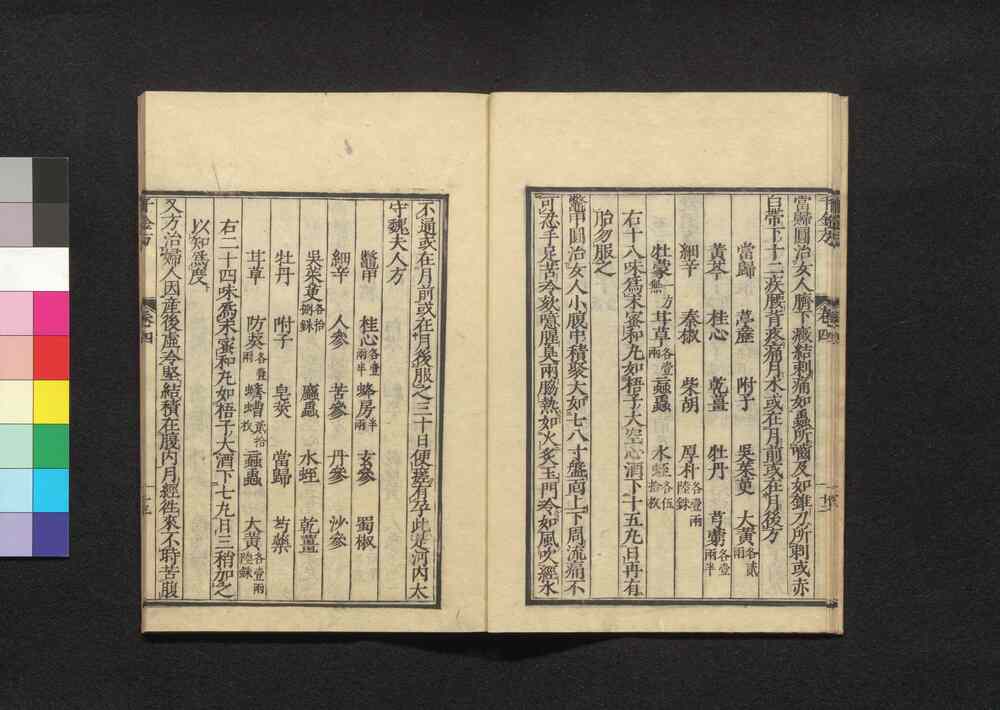 當歸圓治女人臍下癥結刺痛如蟲所嚙及如錐刀所刺或赤
白帶下十二疾腰背疼痛月水或在月前或在月後方
當歸 葶藶 附子 吳茱萸 大黃各貳兩
黃芩 桂心 乾薑 牡丹 芎藭各壹兩半
細辛 秦椒 柴胡 厚朴各壹兩陸銖
牡蒙一方無 茸草各壹兩 蝱蟲 水蛭各伍拾枚
右十八味爲末蜜和丸如梧子大空心酒下十五丸日再有
胎勿服之
鼈甲圓治女人小腹中積聚大如七八寸盤面上下周流痛不
可忍手足苦冷欬噫腥臭兩脇熱如火炙玉門冷如風吹經水
不通或在月前或在月後服之三十日便瘥有孕此是河內太
守魏夫人方
鼈甲 桂心各壹兩半 蜂房半兩 玄參 蜀椒
細辛 人參 苦參 丹參 沙參
吳茱萸各拾捌銖 䗪蟲 水蛭 乾薑
牡丹 附子 皂莢 當歸 芍藥
茸草 防葵各壹兩 蠐螬貳拾枚 蝱蟲 大黃各壹兩陸銖
右二十四味爲末蜜和丸如梧子大酒下七丸日三稍加之
以知爲度
又方治婦人因產後虛冷堅結積在腹內月經往來不時苦腹